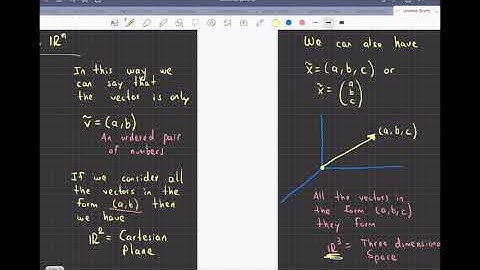 . ℝⁿ
In this way we
can say that
the vector is only
ṽ = (a,b)
An ordered pair
of numbers
If we consider all
the vectors in the
form (a,b) then
we have
ℝ² = Cartesian
Plane
We can also have
x̃ = (a,b,c) or
x̃ = (a b c)
(a,b,c)
All the vectors in
the form (a,b,c)
they form
ℝ³ = Three dimensional
Space